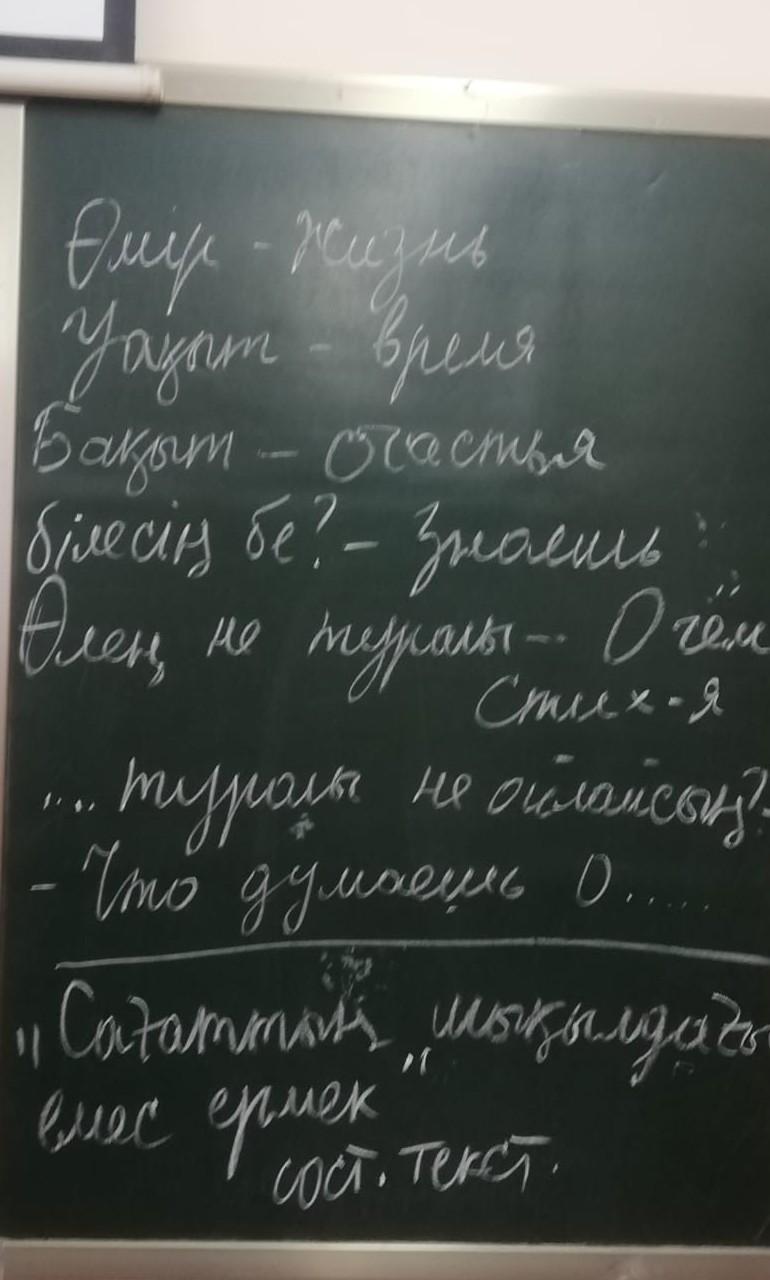 Өмір - Жизнь
Уақыт - время
Бақыт - счастья
білесің бе? - Знаешь
Өлең не туралы - О чём
стих-я
... туралы не ойлайсың?
- Что думаешь О.....
"Сағаттың шықылдағы
емес ермек"
сост. текст.